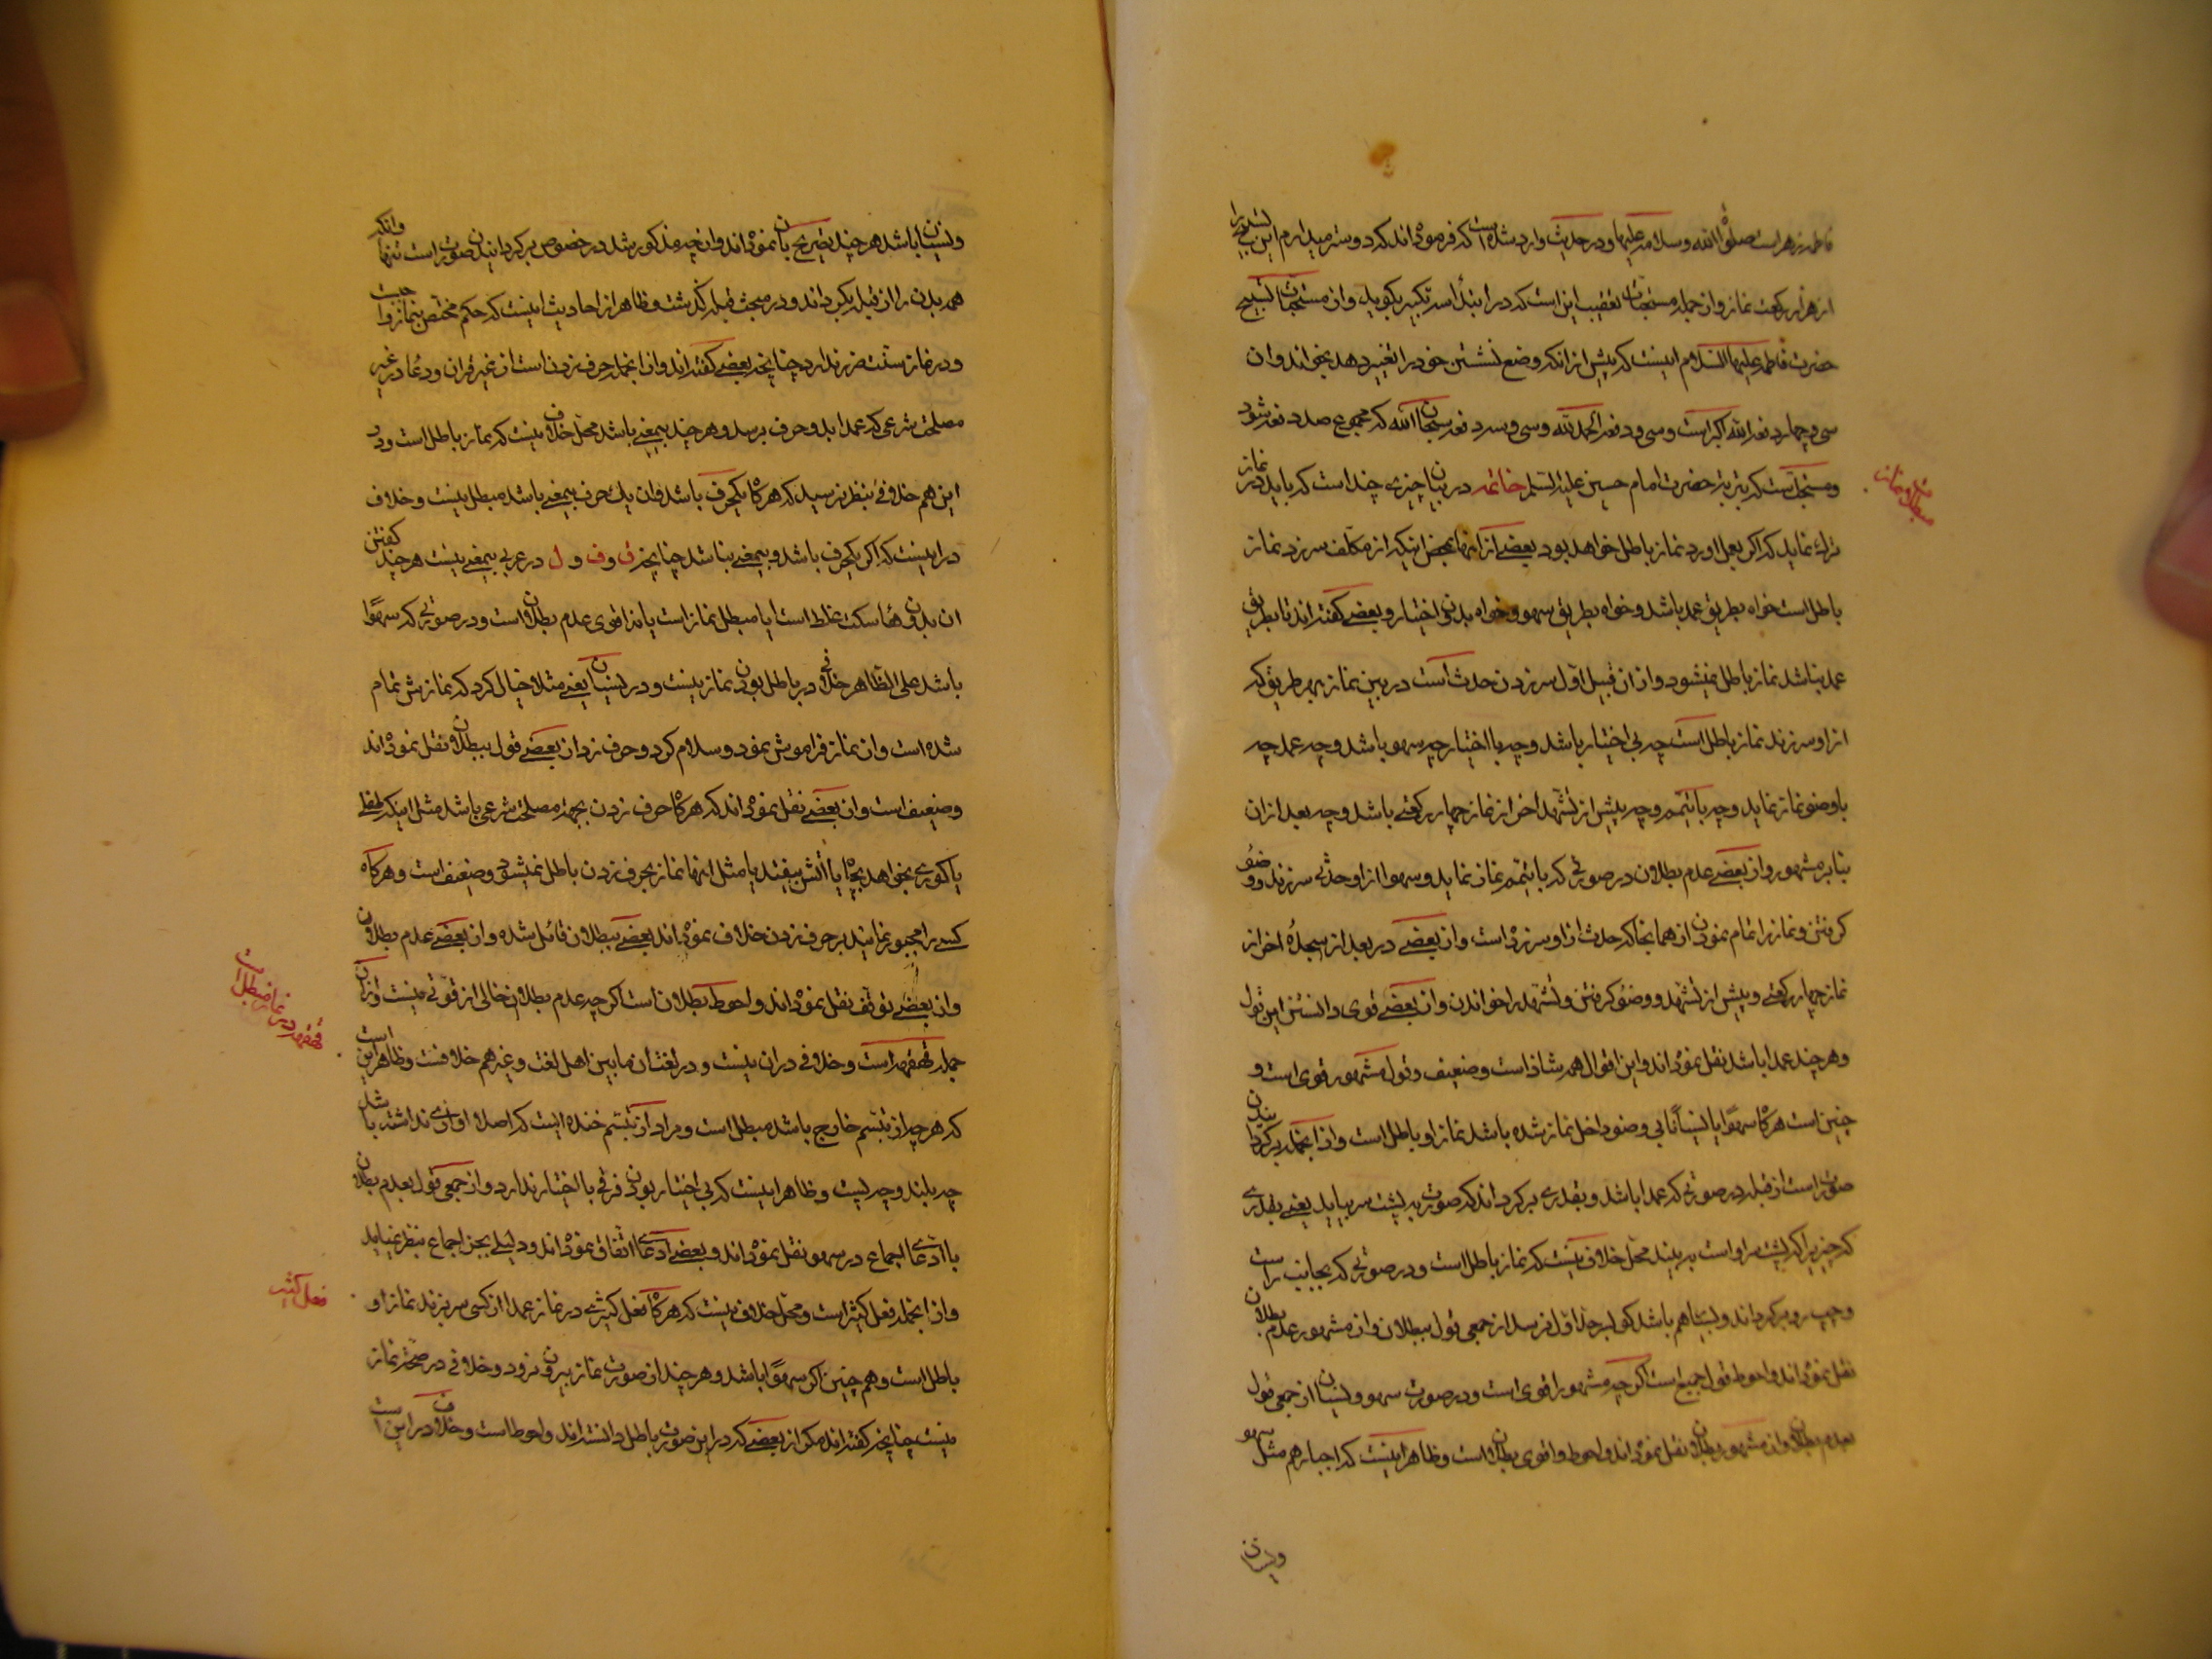 فاطمه زهراست صلوات الله وسلامه علیها و در حدیث وارد شده است که فرموده اند که دوستر میدارم این تسبیح را
از هزار رکعت نماز و از جمله مستحبات تعقیب این است که در ابتدا سه تکبیر بگوید و از مستحبات تسبیح
حضرت فاطمه علیها السلام اینست که پیش از انکه وضع نشستن خود را تغییر دهد بخواند و ان
سی و چهار دفعه الله اکبر است و سی و دفعه الحمد لله و سی و سه دفعه سبحان الله که مجموع صد دفعه شود
و مستحب است که بتربة حضرت امام حسین علیه السلم خاتمه در بیان چیزی چند است که باید در نماز
مبطلات نماز
ترک نماید که اکر بعمل اورد نماز باطل خواهد بود بعضی از انها بمحض اینکه از مکلف سر زد نماز
باطل است خواه بطریق عمد باشد و خواه بطریق سهو و خواه بدون اختیار و بعضی کفته اند تا بطریق
عمد نباشد نماز باطل نمیشود و از ان قبیل اول سر زدن حدث است در بین نماز بهر طریق که
از او سر زند نماز باطل است چه بی اختیار باشد و چه با اختیار چه سهو باشد و چه عمد چه
با وضو نماز نماید و چه با تیمم و چه پیش از تشهد اخر از نماز چهار رکعتی باشد و چه بعد از ان
بنابر مشهور و از بعضی عدم بطلان در صورتی که با تیمم نماز نماید و سهوا از او حدثی سر زند و وضو
کرفتن و نماز را تمام نمودن از همانجا که حدث از او سر زده است و از بعضی در بعد از سجده اخر از
نماز چهار رکعتی و پیش از تشهد و وضو کرفتن و تشهد را خواندن و از بعضی قوی دانستن این قول
و هر چند عمدا باشد نقل نموده اند و این اقوال همه شاذ است و ضعیف و قول مشهور قوی است و
چنین است هرکاه سهوا یا نسیانا بی وضو داخل نماز شده باشد نماز او باطل است و از انجمله برکردانیدن
صورت است از قبله در صورتی که عمدا باشد و بقدری برکرداند که صورت به پشت سر بیاید یعنی بقدری
که چیزیرا که در پشت سر او است به بیند محل خلاف نیست که نماز باطل است و در صورتی که بجانب راست
و چپ رو برکرداند و بسیار هم باشد که بحد اول نرسد از جمعی قول ببطلان و از مشهور عدم بطلان
نقل نموده اند و احوط قول جمیع است اکرچه مشهور اقوی است و در صورت سهو و نسیان از جمعی قول
بعدم بطلان و از مشهور بطلان نقل نموده اند و احوط و اقوی بطلان است و ظاهر اینست که اجبار هم مثل سهو
و نسیان
و نسیان باشد هر چند تصریح بان ننموده اند و انچه مذکور شد در خصوص برکردانیدن صورت است تنها و انکه
همه بدن را از قبله بکرداند و در مبحث قبله کذشت و ظاهر از احادیث اینست که حکم مختص بنماز واجبست
و در نماز سنت ضرر ندارد چنانچه بعضی کفته اند و از انجمله حرف زدن است از غیر قران و دعا در غیر
مصلحت شرعی که عمدا بدو حرف برسد و هر چند بیمعنی باشد محل خلاف نیست که نماز باطل است و در
این هم خلافی بنظر نرسید که هرکاه یکحرف باشد و ان یک حرف بیمعنی باشد مبطل نیست و خلاف
در اینست که اکر یکحرف باشد و بیمعنی نباشد چنانچه ق و ف و ل در عربی بیمعنی نیست هر چند کفتن
ان بدون هاء سکت غلط است ایا مبطل نماز است یا نه اقوی عدم بطلان است و در صورتی که سهوا
باشد علی الظاهر خلافی در باطل بودن نماز نیست و در نسیان یعنی مثلا خیال کرد که نمازش تمام
شده است و ان نماز فراموش نمود و سلام کرد و حرف زد از بعضی قول ببطلان نقل نموده اند
و ضعیف است و از بعضی نقل نموده اند که هرکاه حرف زدن بجهة مصلحت شرعی باشد مثل اینکه طفلی
یا کوری بخواهد بچاه یا اتش بیفتد یا مثل اینها نماز بحرف زدن باطل نمیشود و ضعیف است و هرکاه
کسی را مجبور نمایند بر حرف زدن خلاف نموده اند بعضی ببطلان قائل شده و از بعضی عدم بطلان
و از بعضی توقف نقل نموده اند و احوط بطلان است اکرچه عدم بطلان خالی از قوتی نیست و از ان
قهقهه در نماز مبطل است
جمله قهقهه است و خلافی در ان نیست و در لغت ان ما بین اهل لغت و غیر هم خلافست و ظاهر این است
که هر چه از تبسم خارج باشد مبطل است و مراد از تبسم خنده ایست که اصلا اوازی نداشته باشد
چه بلند و چه پست و ظاهر اینست که بی اختیار بودن فرقی با اختیار ندارد و از جمعی قول بعدم بطلان
با ادعای اجماع در سهو نقل نموده اند و بعضی ادعای اتفاق نموده اند و دلیلی بجز اجماع بنظر نمیاید
فعل کثیر
و از انجمله فعل کثیر است و محل خلاف نیست که هرکاه فعل کثیری در نماز عمدا از کسی سر بزند نماز او
باطل است و هم چنین اکر سهوا باشد و هر چند از صورت نماز بیرون نرود و خلافی در صحة نماز
نیست چنانچه کفته اند مکر از بعضی که در این صورت باطل دانسته اند و احوط است و خلاف در این است